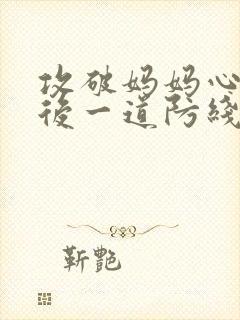 攻破妈妈心
後一道防綫
靳艷